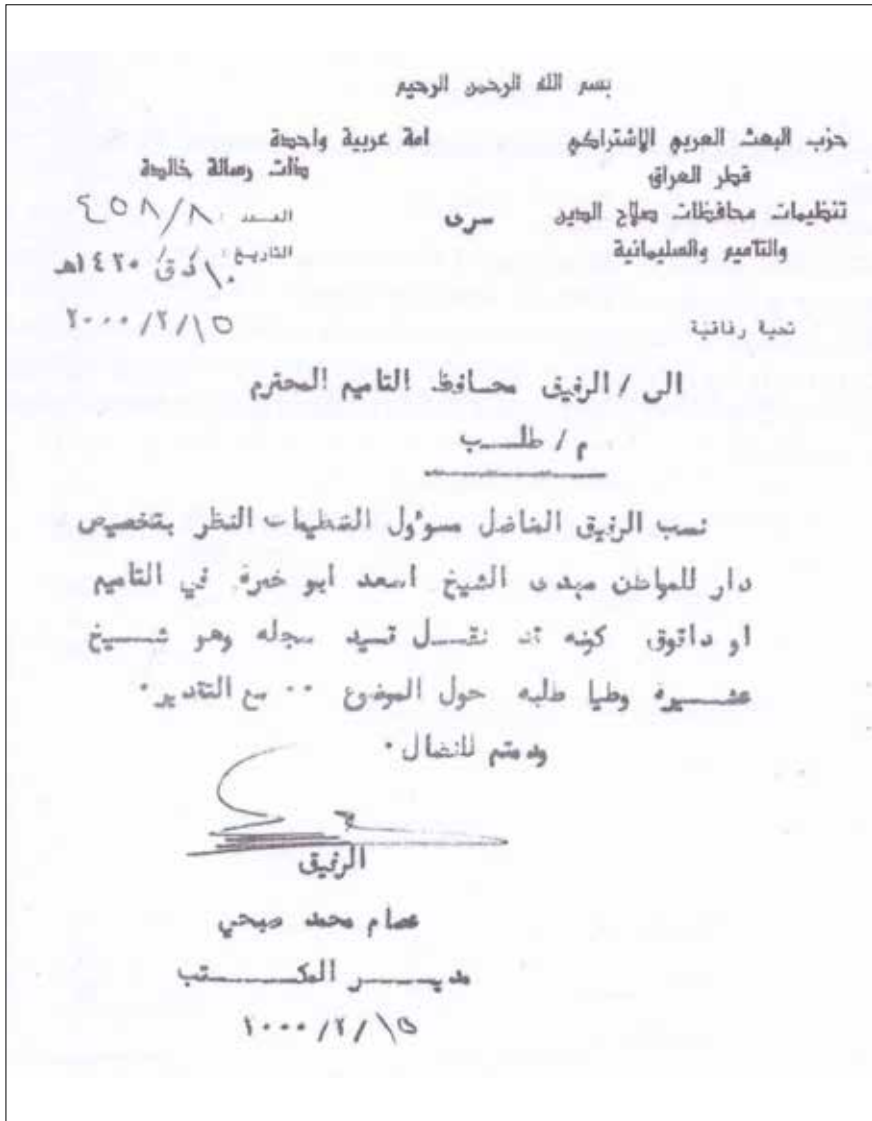 بسم الله الرحمن الرحيم
حزب البعث العربي الإشتراكي
قطر العراق
تنظيمات محافظات صلاح الدين
والتأميم والسليمانية
امة عربية واحدة
ذات رسالة خالدة
سرى
العدد : ٤٥٨/٨
التاريخ : ١٠/ذق/١٤٢٠هـ
٢٠٠٠/٢/١٥
تحية رفاقية
الى / الرفيق محافظ التاميم المحترم
م / طلب
نسب الرفيق الفاضل مسوٴول التنظيمات النظر بتخصيص
دار للمواطن مهدى الشيخ اسعد ابو خمرة في التاميم
او داقوق كونه قد نقل قيد سجله وهو شيخ
عشيرة وطيا طلبه حول الموضوع ٠٠ مع التقدير ٠
ودمتم للنضال ٠
الرفيق
عصام محمد صبحي
مدير المكتب
٢٠٠٠/٢/١٥